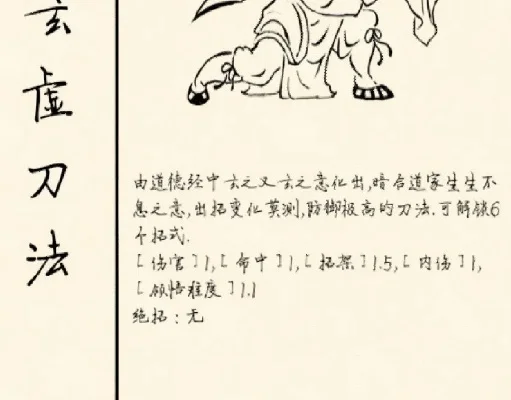 玄虚刀法
由道德经中玄之又玄之意化出,暗合道家生生不
息之意,出招变化莫测,防御极高的刀法.可解锁6
个招式.
[伤害]1,[命中]1,[招架]1.5,[内伤]1,
[领悟难度]1.1
绝招:无